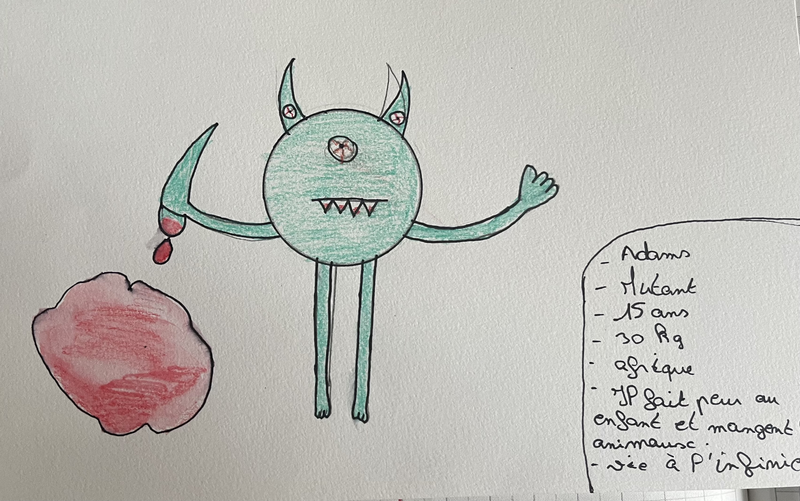 - Adams
- Mutant
- 15 ans
- 30 Kg
- afrique
- Il fait peur au
enfant et mangent
animausc.
- vie à l'infinie